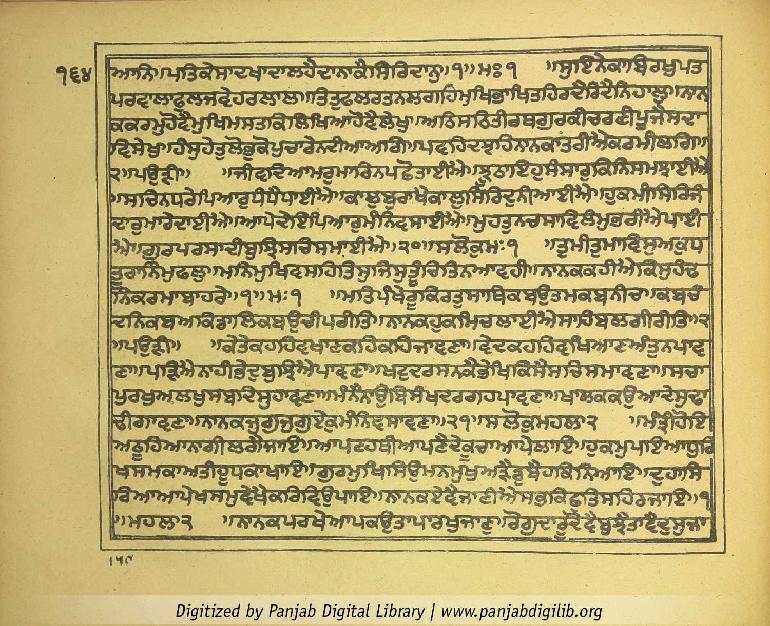 ੧੬੪
ਆਨਿ॥ਪਤਿਕੇਸਾਦਖਾਦਾਲਹੈਦਾਨਾਕੈਸਿਰਿਦਾਨੁ॥੧॥ਮਃ੧ ॥ਸੁਇਨੇਕਾਬਿਰਖੁਪਤ
ਪਰਵਾਲਾਫੁਲਜਵੇਹਰਲਾਲ॥ਤਿਤੁਫਲਰਤਨਲਗਹਿਮੁਖਿਭਾਖਿਤਹਿਰਦੈਰਿਦੈਨਿਹਾਲੁ॥ਨਾਨ
ਕਕਰਮੁਹੋਵੈਮੁਖਿਮਸਤਕਿਲਿਖਿਆਹੋਵੈਲੇਖੁ॥ਅਠਿਸਠਿਤੀਰਥਗੁਰਕੀਚਰਣੀਪੂਜੈਸਦਾ
ਵਿਸੇਖੁ॥ਹੰਸੁਹੇਤੁਲੋਭੁਕੋਪੁਚਾਰੇਨਦੀਆਅਗਿ॥ਪਵਹਿਦਝਹਿਨਾਨਕਾਤਰੀਐਕਰਮੀਲਗਿ॥
੨॥ਪਉੜੀ॥ ॥ਜੀਵਦਿਆਮਰੁਮਾਰਿਨਪਛੋਤਾਈਐ॥ਝੂਠਾਇਹੁਸੰਸਾਰੁਕਿਨਿਸਮਝਾਈਐ
॥ਸਚਿਨਧਰੇਪਿਆਰੁਧੰਧੈਧਾਈਐ॥ਕਾਲੁਬੁਰਾਖੈਕਾਲੁਸਿਰਿਦੁਨੀਆਈਐ॥ਹੁਕਮੀਸਿਰਿਜੰ
ਦਾਰੁਮਾਰੇਦਾਈਐ॥ਆਪੇਦੇਇਪਿਆਰੁਮੰਨਿਵਸਾਈਐ॥ਮੁਹਤੁਨਚਸਾਵਿਲੰਮੁਭਰੀਐਪਾਈ
ਐ॥ਗੁਰਪਰਸਾਦੀਬੁਝਿਸਚਿਸਮਾਈਐ॥੨੦॥ਸਲੋਕੁਮਃ੧ ॥ਤੁਮੀਤੁਮਾਵਿਸੁਅਕੁਧ
ਤੂਰਾਨਿਮੁਫਲੁ॥ਮਨਿਮੁਖਿਵਸਹਿਤਿਸੁਜਿਸੁਤੂੰਚਿਤਿਨਆਵਹੀ॥ਨਾਨਕਕਹੀਐਕਿਸੁਹੰਢ
ਨਿਕਰਮਾਬਾਹਰੇ॥੧॥ਮਃ੧ ॥ਮਤਿਪੰਖੇਰੂਕਿਰਤੁਸਾਥਿਕਬਉਤਮਕਬਨੀਚ॥ਕਬਚੰ
ਦਨਿਕਬਅਕਿਡਾਲਿਕਬਉਚੀਪਰੀਤਿ॥ਨਾਨਕਹੁਕਮਿਚਲਾਈਐਸਾਹਿਬਲਗੀਰੀਤਿ॥੨
॥ਪਉੜੀ॥ ॥ਕੇਤੇਕਹਹਿਵਖਾਣਕਹਿਕਹਿਜਾਵਣਾ॥ਵੇਦਕਹਹਿਵਖਿਆਣਅੰਤੁਨਪਾਵ
ਣਾ॥ਪੜਿਐਨਾਹੀਭੇਦੁਬੁਝਿਐਪਾਵਣਾ॥ਖਟੁਦਰਸਨਕੈਭੇਖਿਕਿਸੈਸਚਿਸਮਾਵਣਾ॥ਸਚਾ
ਪੁਰਖੁਅਲਖੁਸਬਦਿਸੁਹਾਵਣਾ॥ਮੰਨੇਨਾਉਬਿਸੰਖਦਰਗਹਪਾਵਣਾ॥ਖਾਲਕਕਉਆਦੇਸੁਢਾ
ਢੀਗਾਵਣਾ॥ਨਾਨਕਜੁਗੁਜੁਗੁਏਕੁਮੰਨਿਵਸਾਵਣਾ॥੨੧॥ਸਲੋਕੁਮਹਲਾ੨ ॥ਮੰਤ੍ਰੀਹੋਇ
ਅਠੂਹਿਆਨਾਗੀਲਗੈਜਾਇ॥ਆਪਣਹਥੀਆਪਣੈਦੇਕੂਚਾਆਪੇਲਾਇ॥ਹੁਕਮੁਪਇਆਧੁਰਿ
ਖਸਮਕਾਅਤੀਹੂਧਕਾਖਾਇ॥ਗੁਰਮੁਖਸਿਉਮਨਮੁਖੁਅੜੈਡੁਬੈਹਕਿਨਿਆਇ॥ਦੁਹਾਸਿ
ਰਿਆਆਪੇਖਸਮੁਵੇਖੈਕਰਿਵਿਉਪਾਇ॥ਨਾਨਕਏਵੈਜਾਣੀਐਸਭਕਿਛੁਤਿਸਹਿਰਜਾਇ॥੧
॥ਮਹਲਾ੨ ॥ਨਾਨਕਪਰਖੇਆਪਕਉਤਾਪਾਰਖੁਜਾਣੁ॥ਰੋਗੁਦਾਰੂਦੋਵੈਬੁਝੈਤਾਵੈਦੁਸੁਜਾ
Digitized by Panjab Digital Library | www.panjabdigilib.org